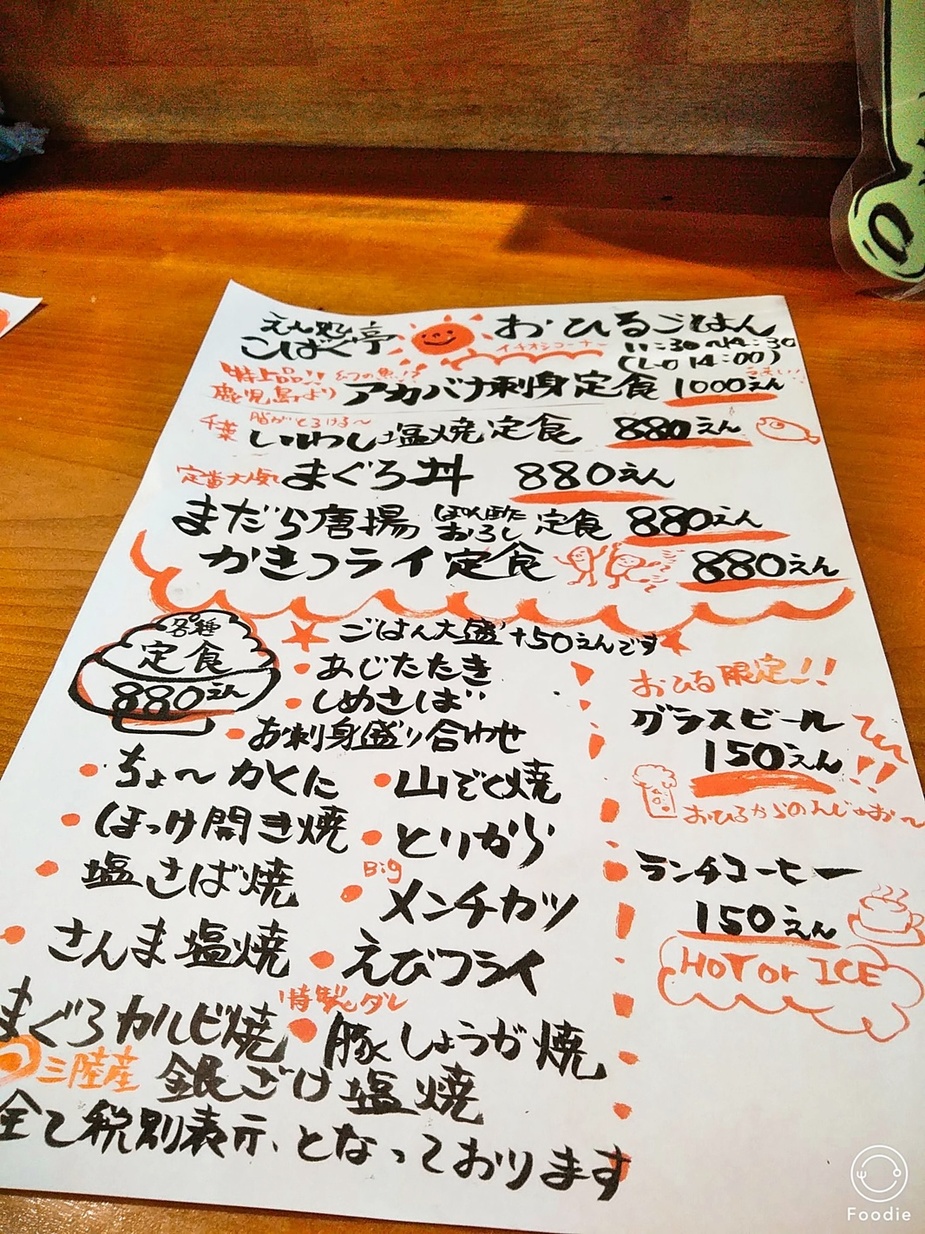 こばく亭
おひるごはん
イチオシコーナー
11:30~14:30
(L.O 14:00)
特上品!! 幻の魚!?
鹿児島より アカバナ刺身定食 1000えん
千葉 脂がとろける~
いわし塩焼定食 880えん
定番大人気 まぐろ丼 880えん
まだら唐揚 おろし 定食 880えん
かきフライ定食 880えん
各種
定食
880えん
ごはん大盛+50えんです
・あじたたき
・しめさば
・お刺身盛り合わせ
・ちょ~かくに
・ほっけ開き焼
・塩さば焼
・さんま塩焼
まぐろカルビ焼
・とりから
Big
・メンチカツ
・えびフライ
特製タレ
・豚しょうが焼
三陸産 銀ざけ塩焼
全て税別表示となっております
おひる限定!!
グラスビール
150えん
おひるからのんじゃお~
ランチコーヒー
150えん
HOT or ICE
Foodie